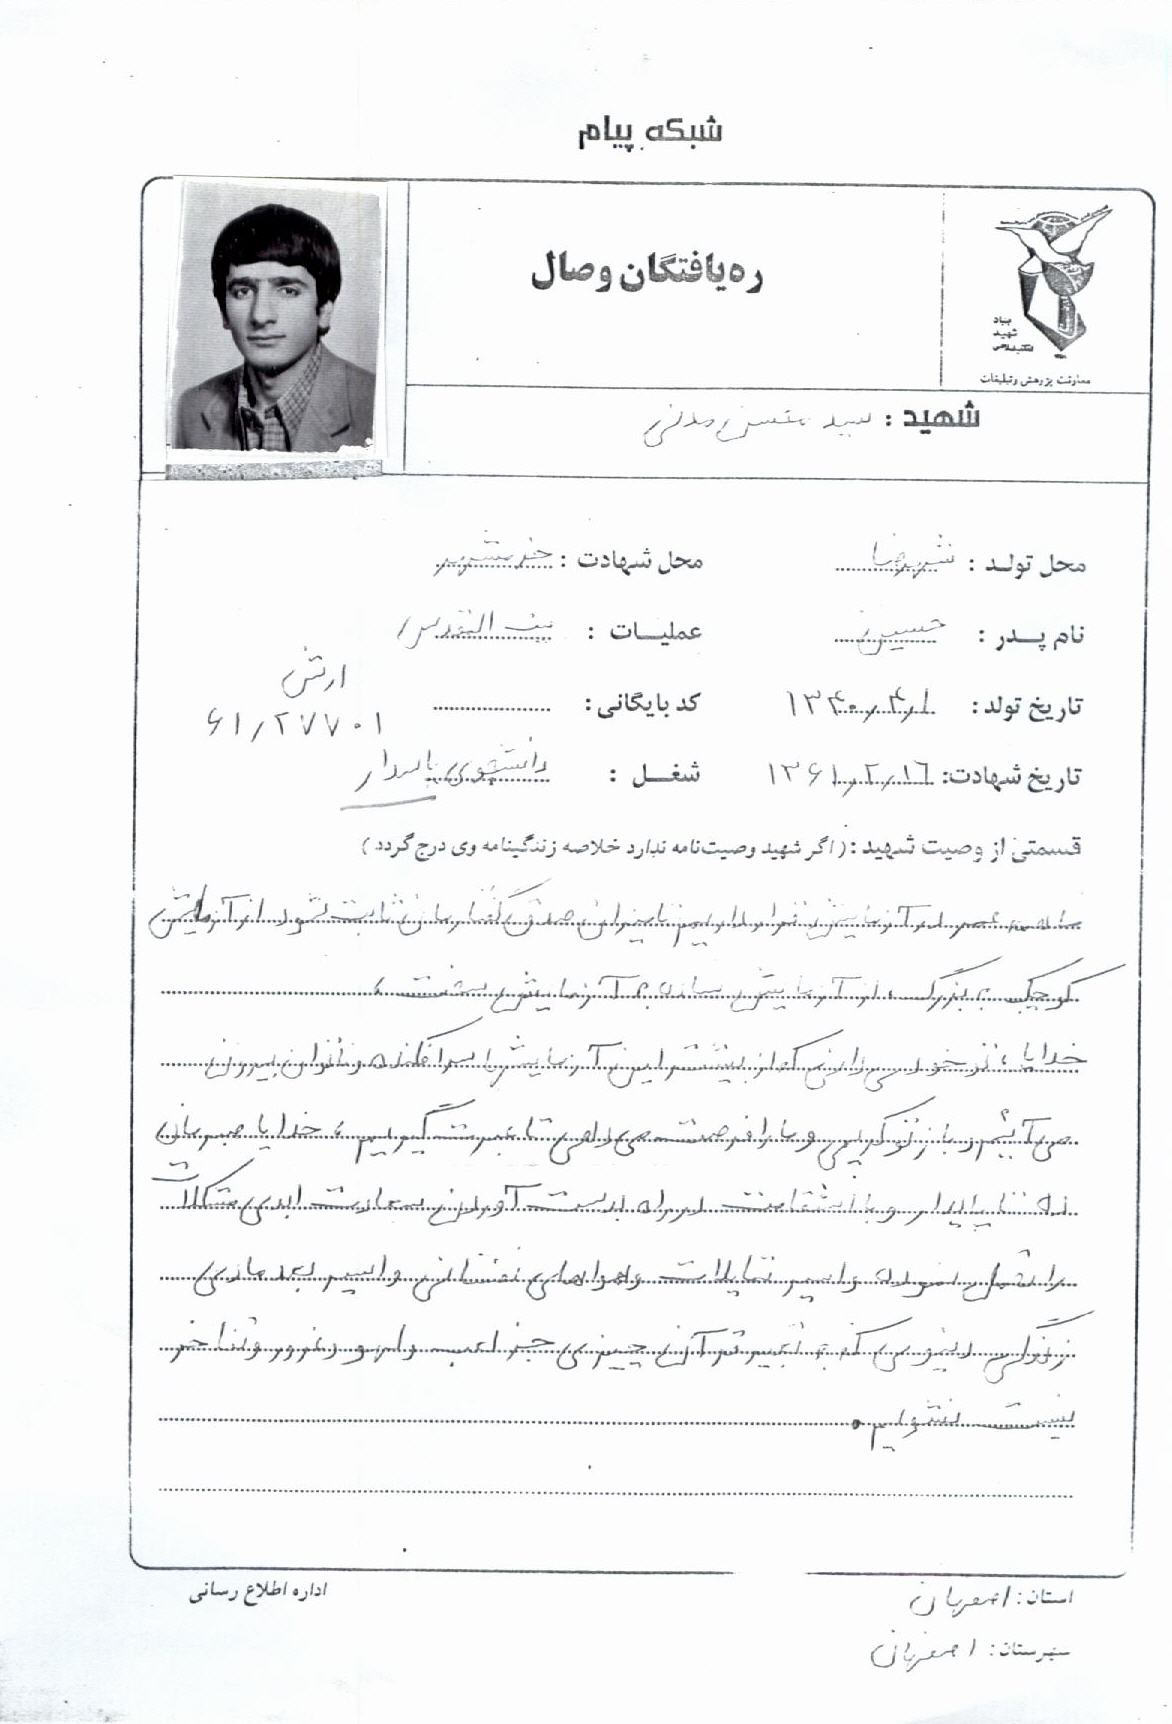 شبکه پیام
ره یافتگان وصال
بنیاد
شهید
انقلاب اسلامی
معاونت پژوهش وتبلیغات
شهید : سید محسن مدنی
محل تولد : شهرضا
محل شهادت : خرمشهر
نام پدر : حسین
عملیات : بیت المقدس
تاریخ تولد : ۱۳۴۰/۴/۱
کد بایگانی :
ارتش
۶۱/۲۷۷۰۱
تاریخ شهادت: ۱۳۶۱/۲/۱۶
شغل : دانشجوی پاسدار
قسمتی از وصیت شهید : ( اگر شهید وصیت‌نامه ندارد خلاصه زندگینامه وی درج گردد )
ما همه عمر در آزمایش قرار داریم تا میزان صدق گفتارمان ثابت شود از آزمایش
کوچک به بزرگ ، از آزمایش ساده به آزمایش سخت ،
خدایا ، تو خود می دانی که از بیشتر این آزمایشها سرافکنده و ناتوان بیرون
می آئیم و باز تو کریمی و ما را فرصت می دهی تا عبرت گیریم ، خدایا صبرمان
ده تا پایدار و با استقامت در راه بدست آوردن سعادت ابدی مشکلات
را تحمل نموده و اسیر تمایلات و هواهای نفسانی و اسیر بعد مادی
زندگی دنیوی که به تعبیر قرآن چیزی جز لعب و لهو و غرور و تفاخر
نیست نشویم .
اداره اطلاع رسانی
استان : اصفهان
شهرستان : اصفهان